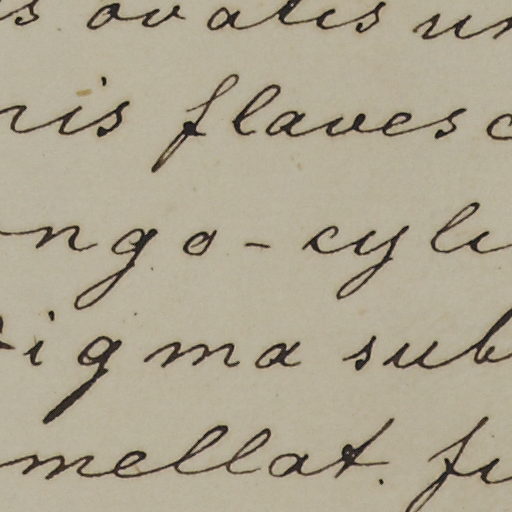 s ovatis un
ris flavesc
ongo-cyli
tigma sub
mellat. fi